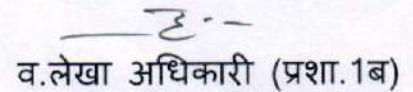 व.लेखा अधिकारी (प्रशा.1ब)